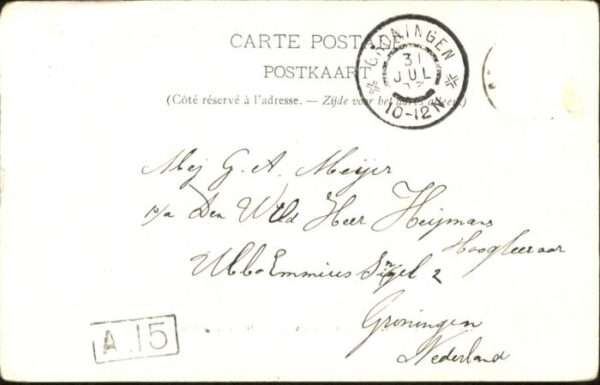 CARTE POSTALE
POSTKAART
(Côté réservé à l'adresse. — Zijde voor het adres alleen.)
GRONINGEN
31
JUL
10-12N
Mej G. A. Meijer
p/a Den Wld Heer Heijmans
Hoogleeraar
Ubbo Emmius Singel 2
Groningen
Nederland
A.15